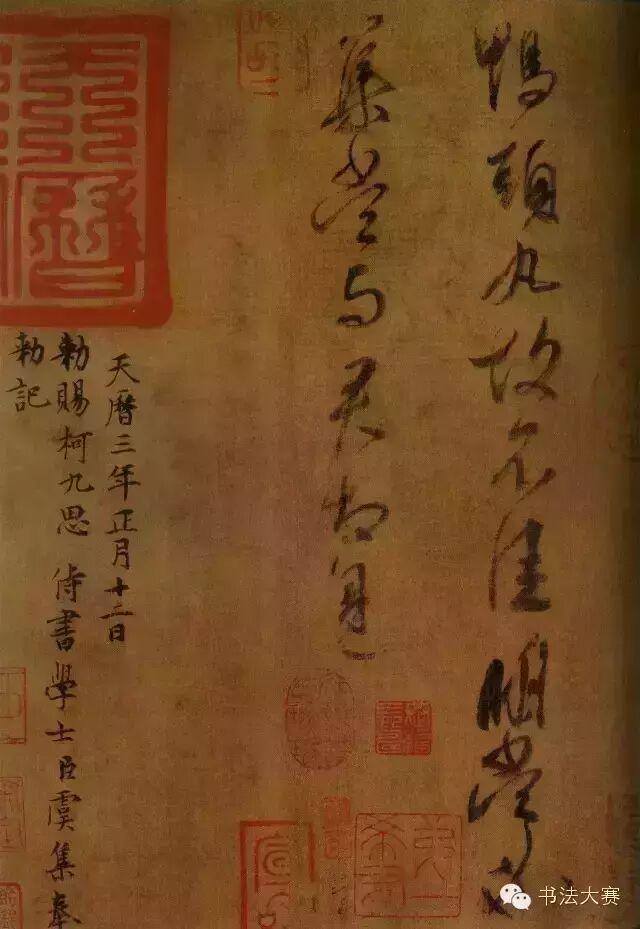 鴨頭丸故不佳明當必
集當与君相見
天曆三年正月十二日
勑賜柯九思侍書學士臣虞集奉
勑記
书法大赛